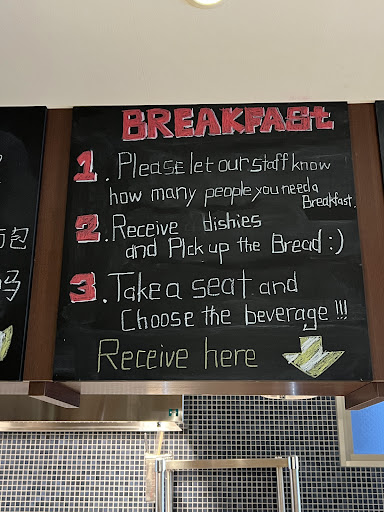 BREAKFASt
1. Please let our staff know
how many people you need a
Breakfast.
2. Receive dishies
and Pick up the Bread :)
包
3. Take a seat and
Choose the beverage !!!
Receive here